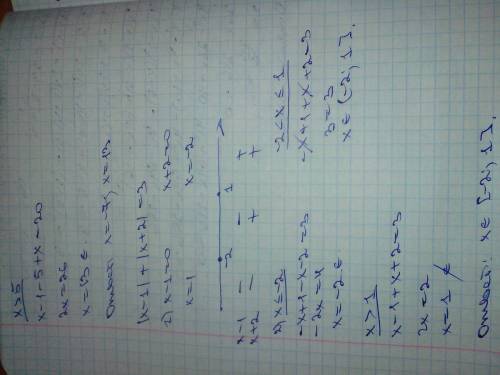 x>5
x-1-5+x=20
2x=26
x=13 €
Ответ: x=-7; x=13
|x-1|+|x+2|=3
1) x-1=0 x+2=0
x=1 x=-2
-2 1
x-1 - - +
x+2 - + +
2) x≤-2
-x+1-x-2=3
-2x=4
x=-2 €
-2<x≤1
-x+1+x+2=3
3=3
x∈(-2; 1].
x>1
x-1+x+2=3
2x=2
x=1 ∉
Ответ: x∈[-2; 1].